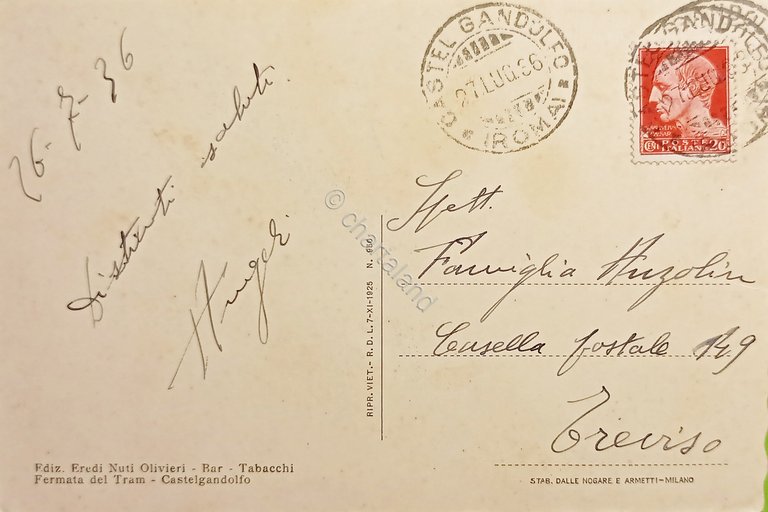 26-7-36
Distinti saluti.
CASTEL GANDOLFO
27 LUG. 36
(ROMA)
POSTE
ITALIANE
CENT. 20
Spett.
Famiglia Anzolin
Casella postale 149
Treviso
RIPR. VIET. - R. D. L. 7-XI-1925 N. 950
© chartaland
Ediz. Eredi Nuti Olivieri - Bar - Tabacchi
Fermata del Tram - Castelgandolfo
STAB. DALLE NOGARE E ARMETTI-MILANO